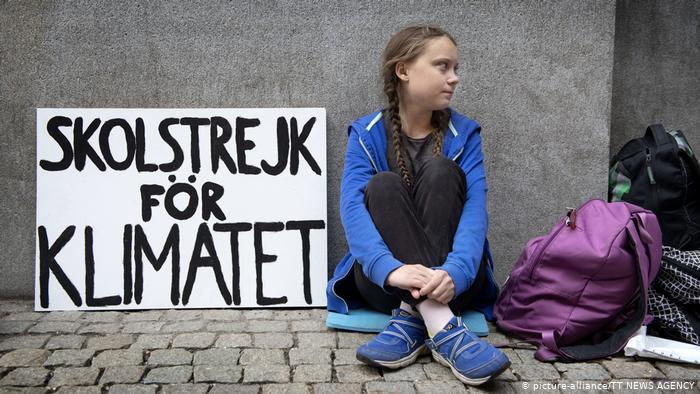 SKOLSTREJK
FÖR
KLIMATET
© picture-alliance/TT NEWS AGENCY